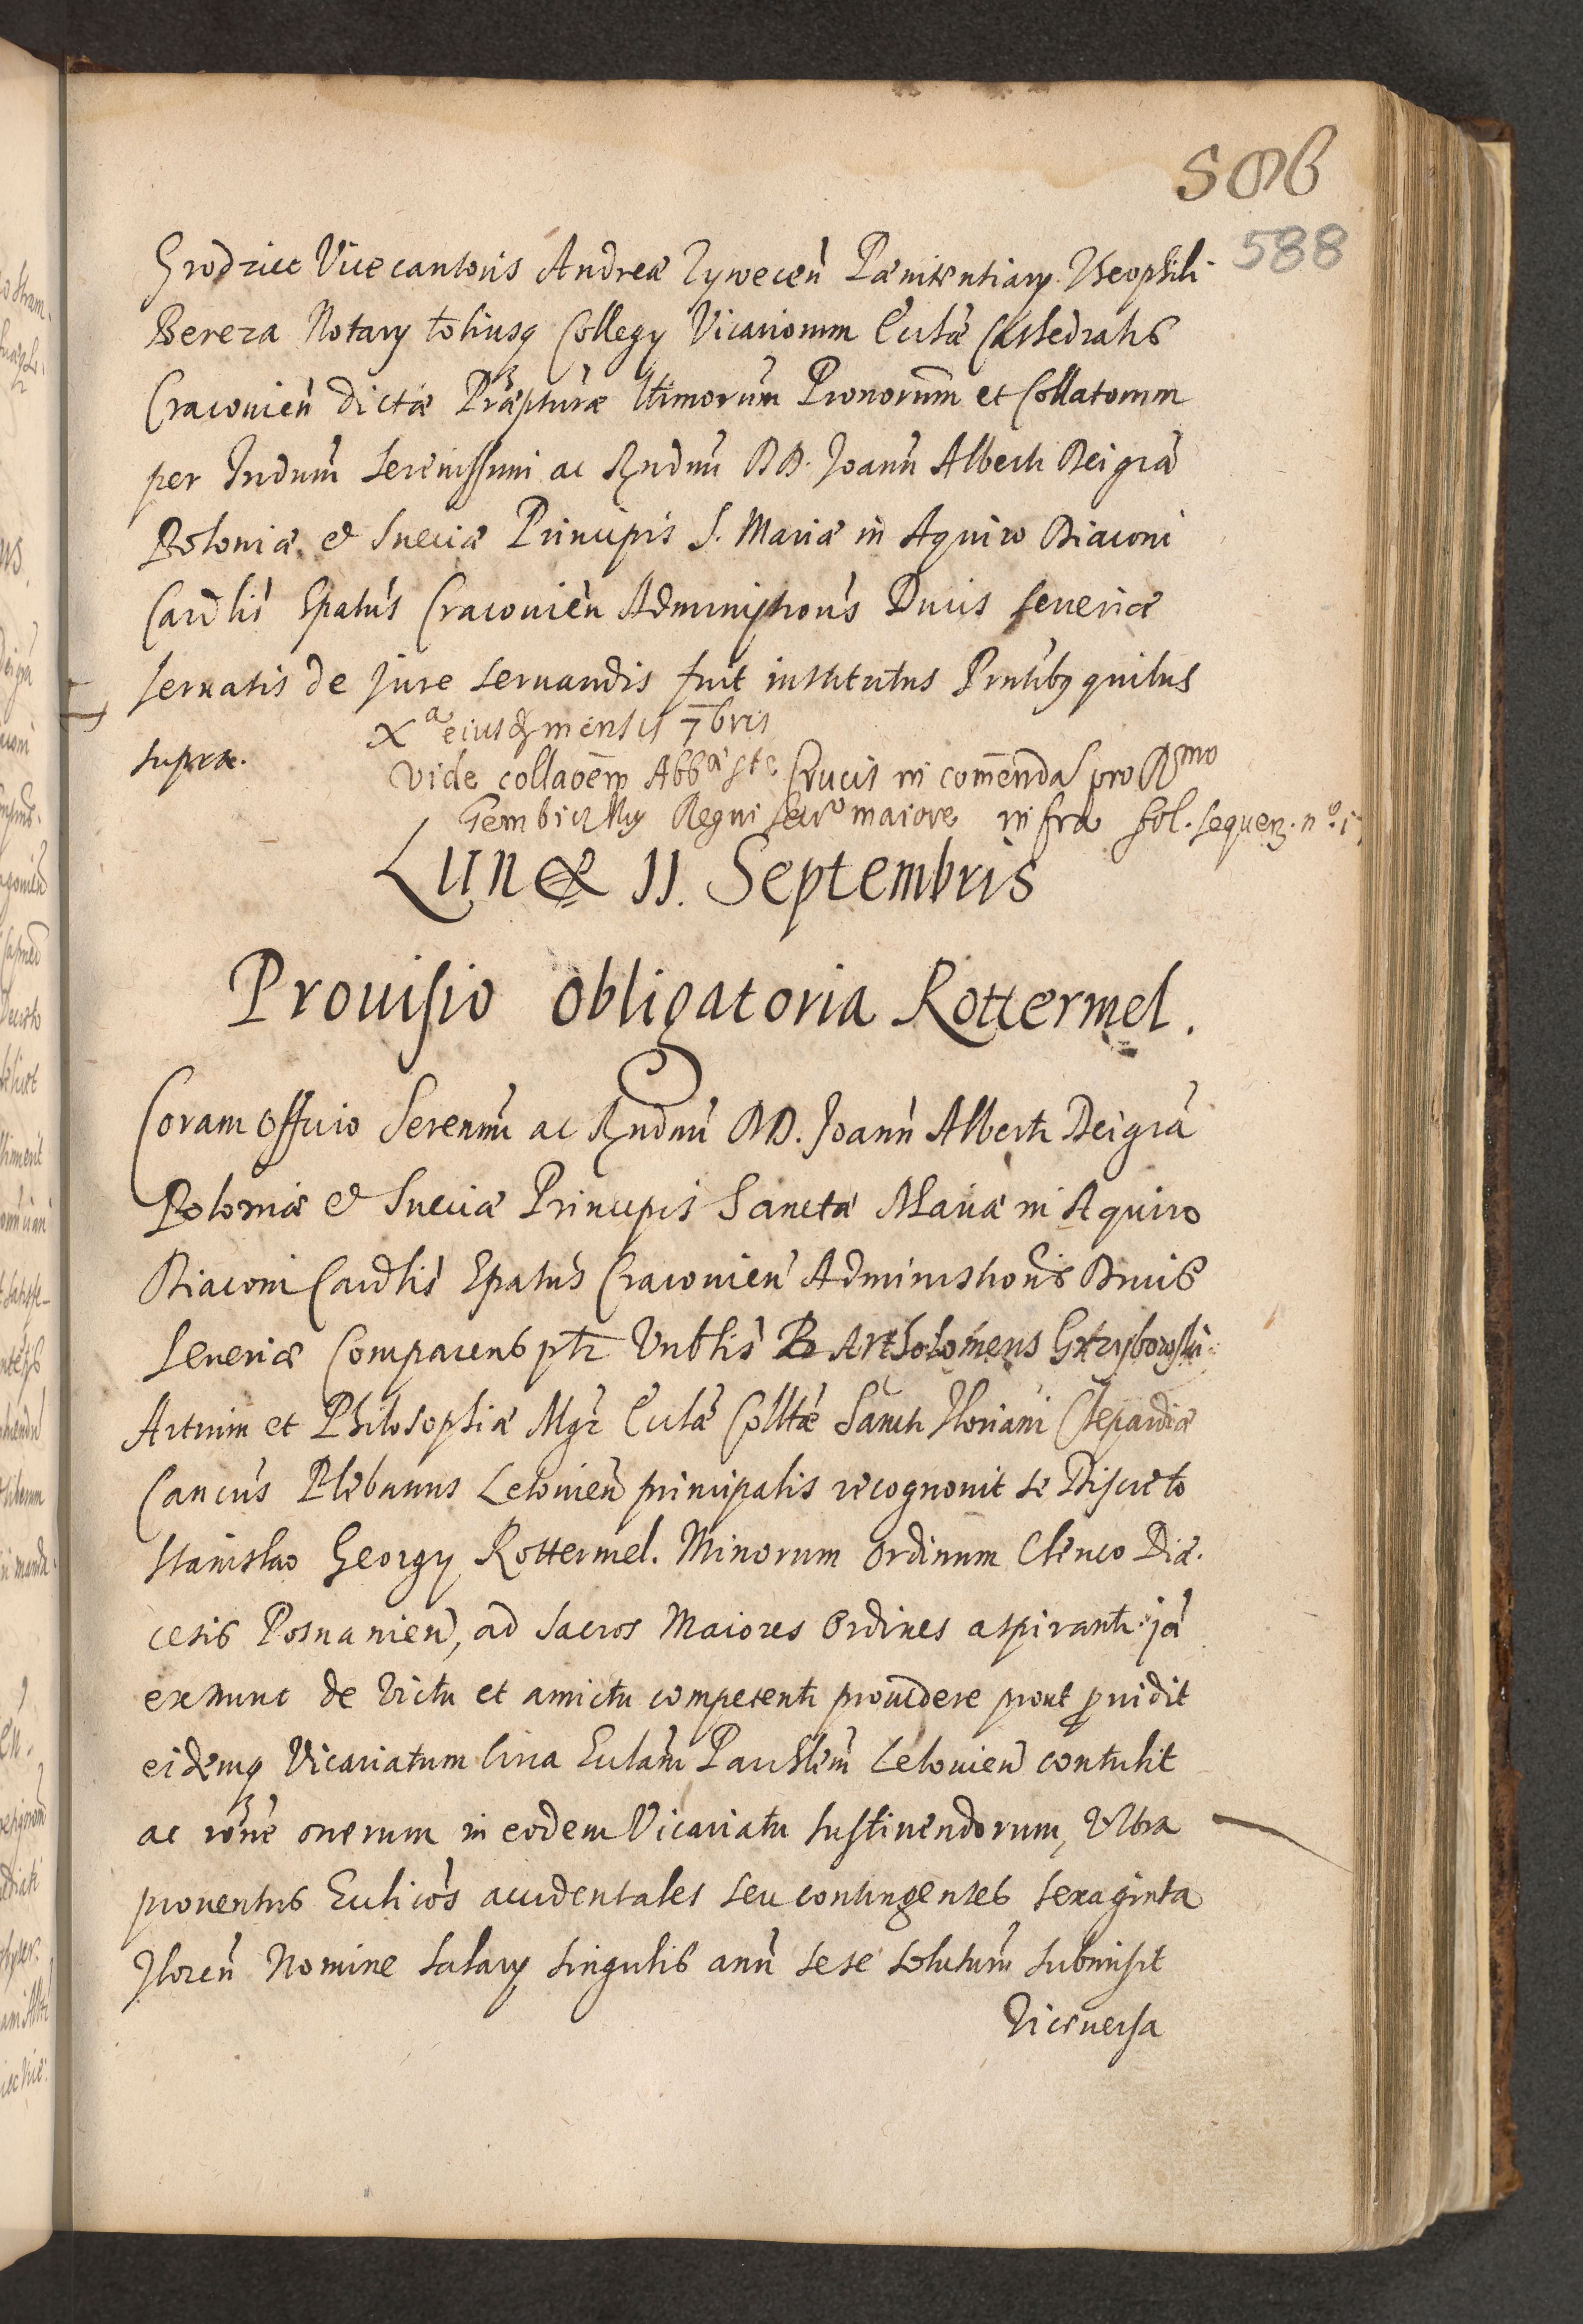 588
Grodzicc Vicecantoris Andreæ Zywecen̄ Pænitentiarÿ Theophili
Bereza Notarÿ totiusq Collegÿ Vicariorum Ecclæ Cathedralis
Cracouien̄ dictæ Præpturæ Ltimorum Pronorum et Collatorum
per Indum Serenissimi ac Rndmi DD. Joann̄ Alberti Dei gr̄a
Poloniæ & Sueciæ Principis S. Mariæ in Aquiro Diaconi
Cardlis Epatus Cracouien̄ Administroris Ducis Seueriæ
seruatis de jure seruandis fuit institutus Prntibq quibus
supra.
Xa eiusdē mensis 7bris
Vide collaōem Abbæ Stæ Crucis in comēnda pro Rmo
Gembicki Regni Secrō maiore infra fol. sequen. nº. 1
Lunæ 11. Septembris
Prouisio obligatoria Rottermel.
Coram Officio Serenmi ac Rndmi DD. Joann̄ Alberti Dei gr̄a
Poloniæ & Sueciæ Principis Sanctæ Mariæ in Aquiro
Diaconi Cardlis Epatus Cracouien̄ Administroris Ducis
Seueriæ Comparens ptr Vnblis Bartholomeus Grzybowski
Artium et Philosophiæ Mgr Ecclæ Colltæ Sancti Floriani Clepardiæ
Cancus Plebanus Lelouien̄ principalis recognouit se Discreto
Stanislao Georgÿ Rottermel. Minorum Ordinum Clerico Diæ.
cesis Posnanien̄, ad Sacros Maiores Ordines aspiranti jā
exnunc de Victu et amictu competenti prouidere prout prouidit
eidemq Vicariatum Circa Ecclam Parchlem Lelouien̄ contulit
ac rōne onerum in eodem Vicariatu sustinendorum, Vltra
prouentus Ecclicos accidentales seu contingentes sexaginta
Floren̄ Nomine Salarÿ singulis ann̄ sese soluturum submisit
Viceuersa